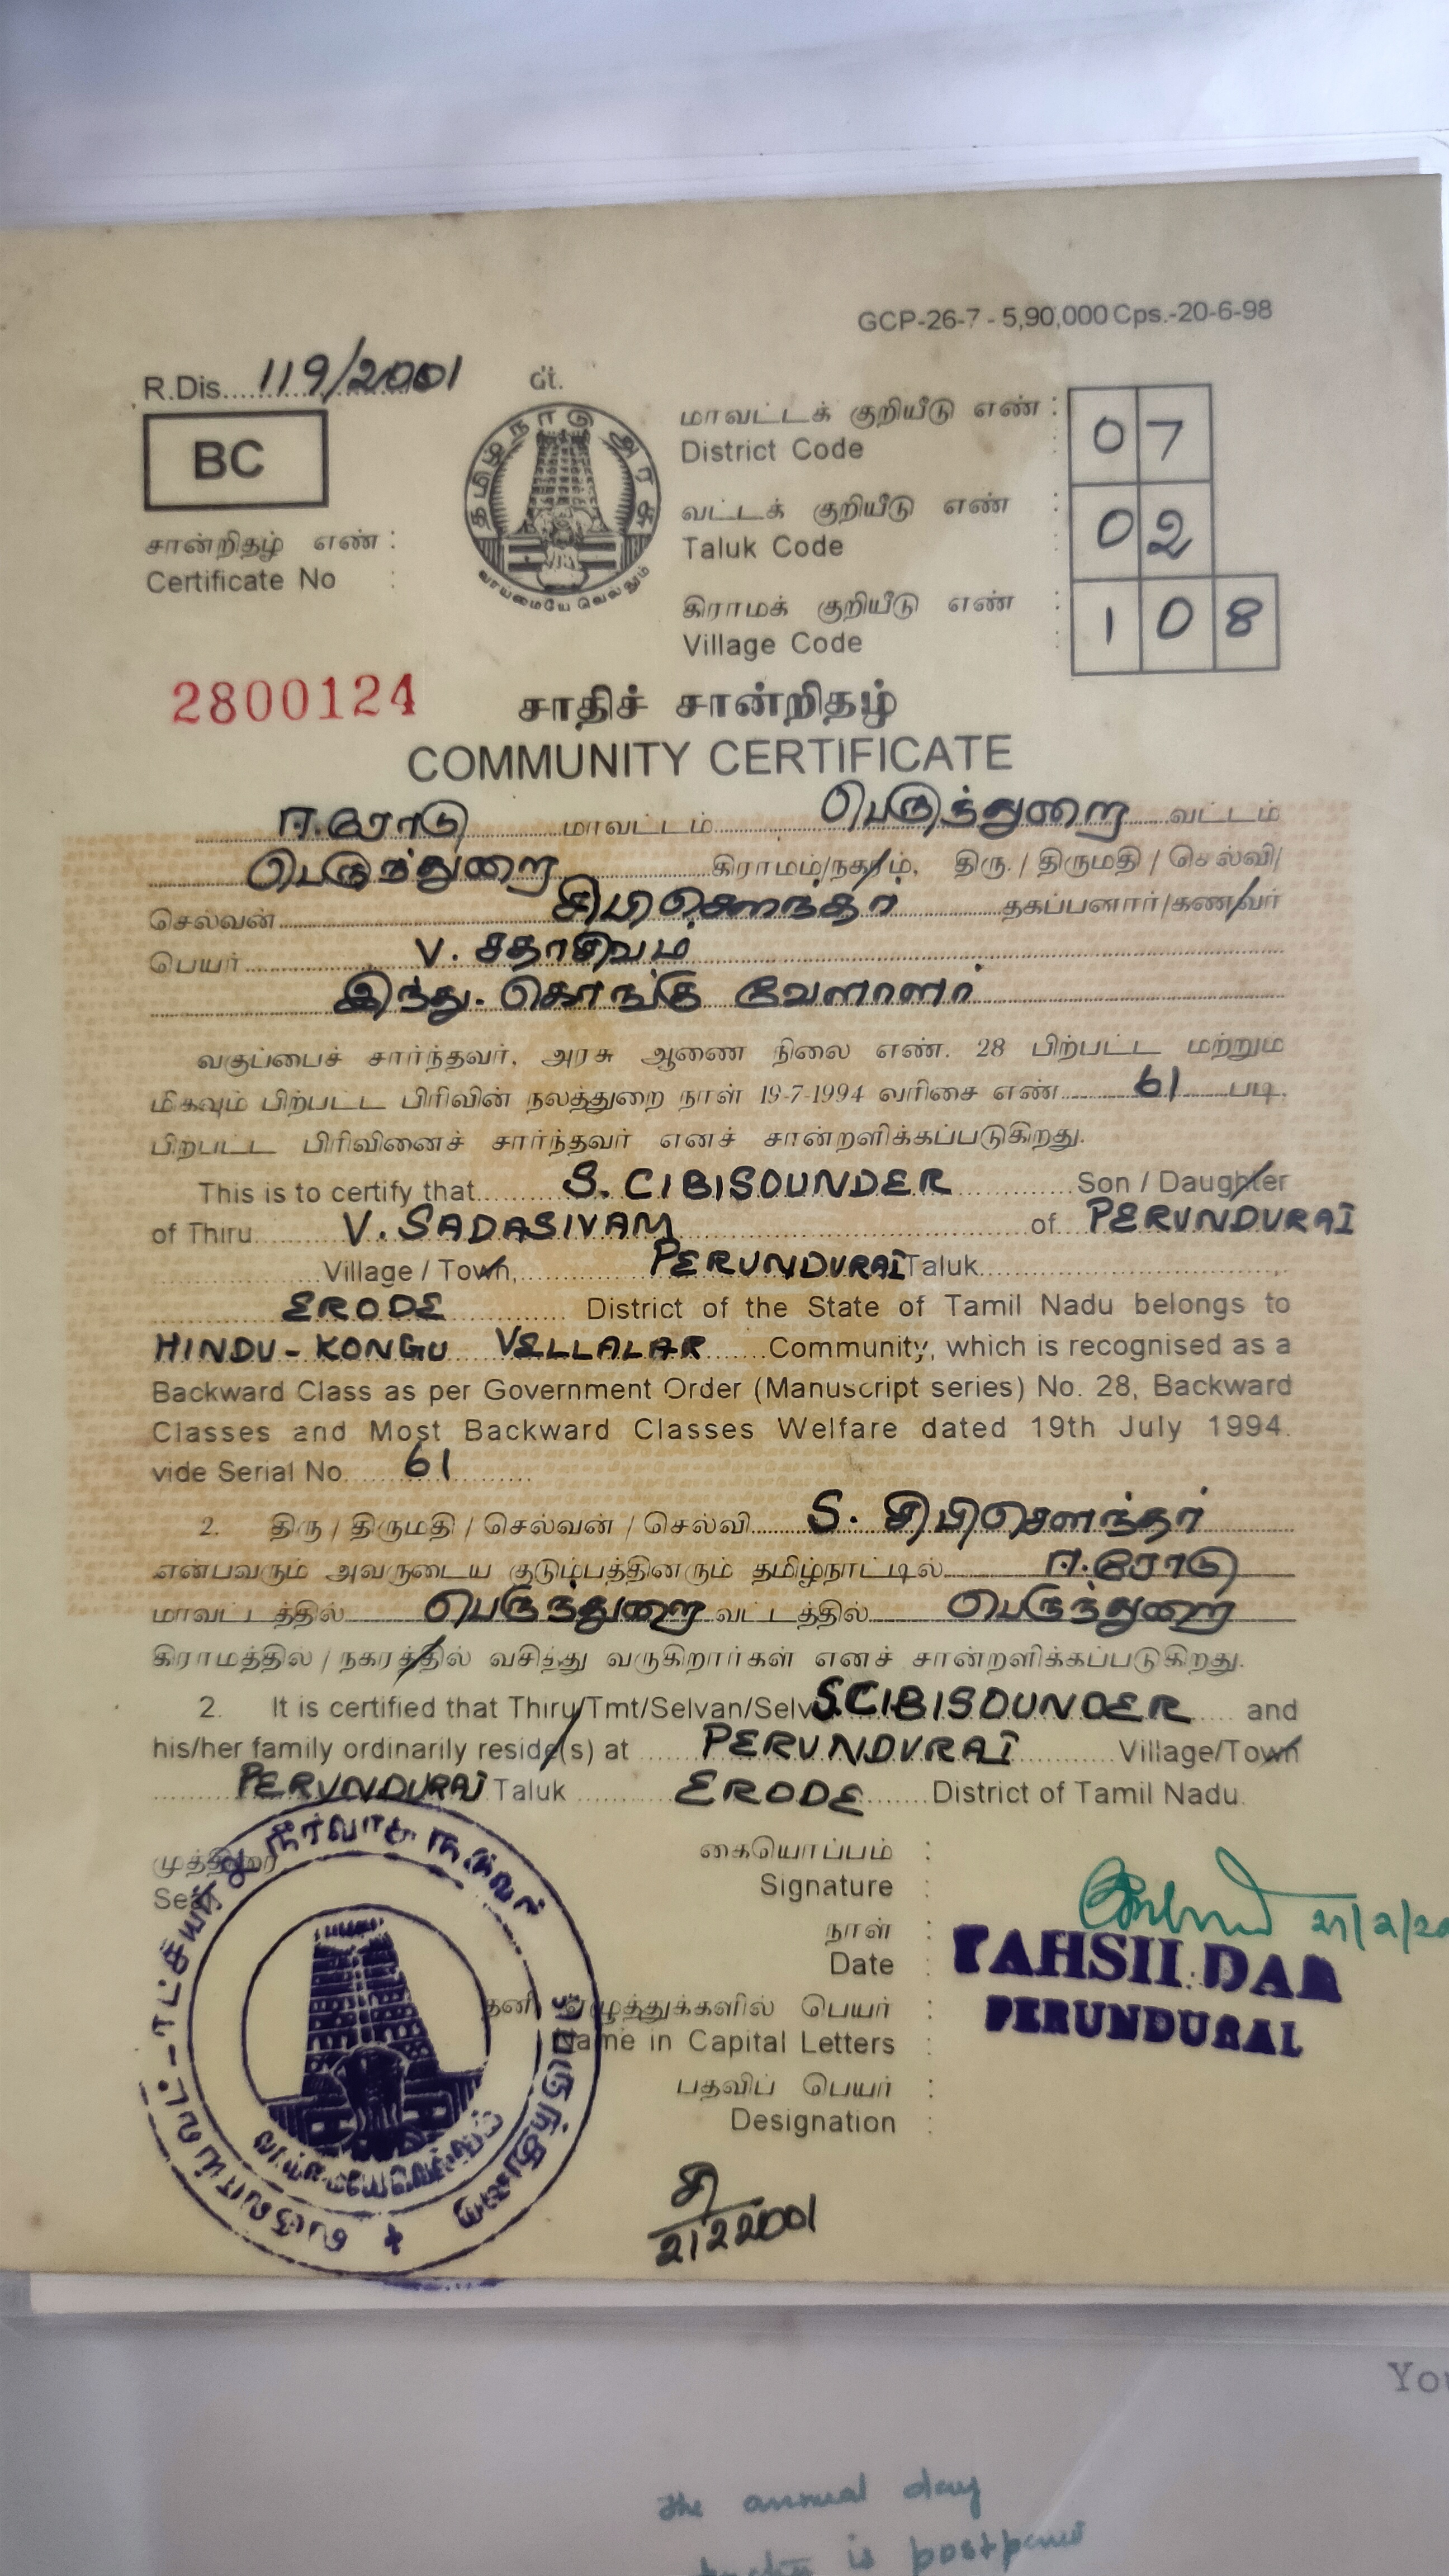 GCP-26-7 - 5,90,000 Cps.-20-6-98
R.Dis....119/2001
பே.
BC
தமிழ்நாடு அரசு
வாய்மையே வெல்லும்
மாவட்டக் குறியீடு எண் : 07
District Code :
வட்டக் குறியீடு எண் : 02
Taluk Code :
கிராமக் குறியீடு எண் : 108
Village Code :
சான்றிதழ் எண் :
Certificate No :
2800124
சாதிச் சான்றிதழ்
COMMUNITY CERTIFICATE
ஈரோடு மாவட்டம் பெருந்துறை வட்டம்
பெருந்துறை கிராமம்/நகரம், திரு. / திருமதி / செல்வி/
செல்வன் சிபிசௌந்தர் தகப்பனார்/கணவர்
பெயர் V. சதாசிவம்
இந்து. கொங்கு வேளாளர்
வகுப்பைச் சார்ந்தவர், அரசு ஆணை நிலை எண். 28 பிற்பட்ட மற்றும
மிகவும் பிற்பட்ட பிரிவின் நலத்துறை நாள் 19-7-1994 வரிசை எண் 61 படி,
பிற்பட்ட பிரிவினைச் சார்ந்தவர் எனச் சான்றளிக்கப்படுகிறது.
This is to certify that S. CIBISOUNDER Son / Daughter
of Thiru V. SADASIVAM of PERUNDURAI
Village / Town, PERUNDURAI Taluk
ERODE District of the State of Tamil Nadu belongs to
HINDU - KONGU VELLALAR Community, which is recognised as a
Backward Class as per Government Order (Manuscript series) No. 28, Backward
Classes and Most Backward Classes Welfare dated 19th July 1994.
vide Serial No. 61
2. திரு / திருமதி / செல்வன் / செல்வி S. சிபிசௌந்தர்
என்பவரும் அவருடைய குடும்பத்தினரும் தமிழ்நாட்டில் ஈரோடு
மாவட்டத்தில் பெருந்துறை வட்டத்தில் பெருந்துறை
கிராமத்தில் / நகரத்தில் வசித்து வருகிறார்கள் எனச் சான்றளிக்கப்படுகிறது.
2. It is certified that Thiru/Tmt/Selvan/Selvi S.CIBISOUNDER and
his/her family ordinarily reside(s) at PERUNDURAI Village/Town
PERUNDURAI Taluk ERODE District of Tamil Nadu.
முத்திரை
Seal
கையொப்பம் :
Signature :
21/2/20
நாள் :
Date :
TAHSILDAR
PERUNDURAI
தனி எழுத்துக்களில் பெயர் :
Name in Capital Letters :
பதவிப் பெயர் :
Designation :
சி
21 2 2001
You
the annual day
is postponed